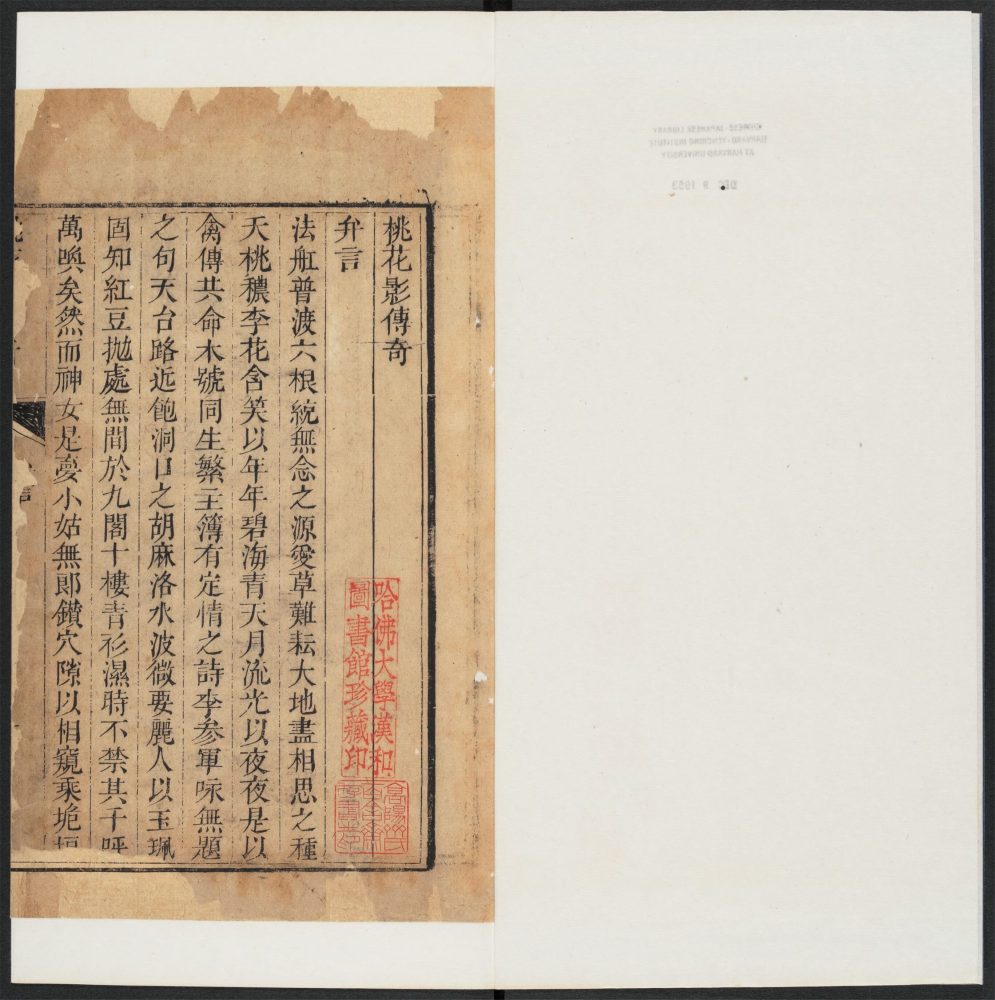 桃花影傳奇
弁言
法舡普渡六根統無念之源愛草難耘大地盡相思之種
夭桃穠李花含笑以年年碧海青天月流光以夜夜是以
禽傳共命木號同生繁主簿有定情之詩李參軍咏無題
之句天台路近飽洞口之胡麻洛水波微要麗人以玉珮
固知紅豆拋處無間於九閣十樓青衫濕時不禁其千呼
萬喚矣然而神女是夢小姑無郎鑽穴隙以相窺乘垝垣
言
哈佛大學漢和
圖書館珍藏印
高陽
CHINESE-JAPANESE LIBRARY
HARVARD-YENCHING INSTITUTE
AT HARVARD UNIVERSITY
DEC 9 1953